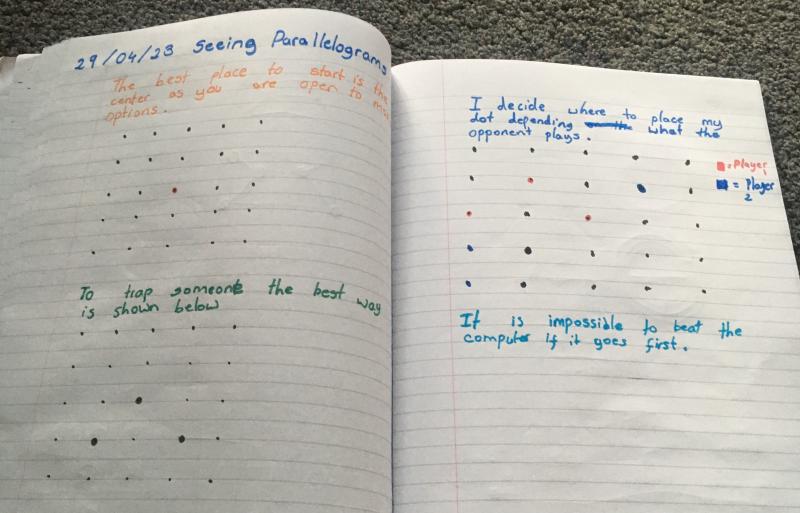 29/04/23 Seeing Parallelograms
The best place to start is the
center as you are open to
options.
To trap someone the best way
is shown below
I decide where to place my
dot depending what the
opponent plays.
= Player 1
= Player
2
It is impossible to beat the
computer if it goes first.